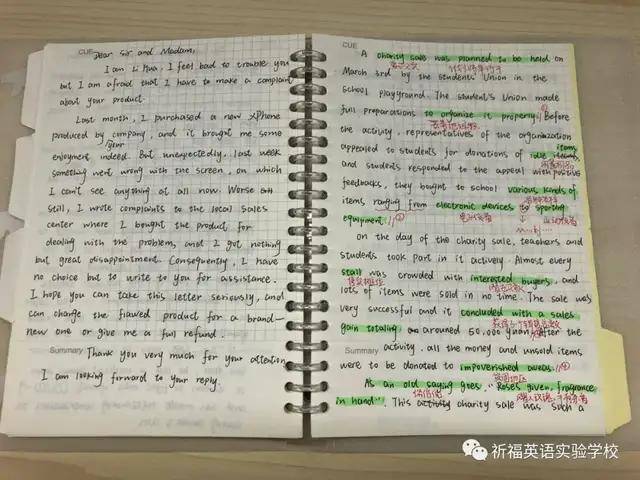 CUE
Dear Sir and Madam,
I am Li Hua, I feel bad to trouble you
but I am afraid that I have to make a complaint
about your product.
Last month, I purchased a new XPhone
produced by your company, and it brought me some
enjoyment indeed. But unexpectedly, last week
something went wrong with the screen, on which
I can't see anything at all now. Worse
still, I wrote complaints to the local sales
center where I bought the product for
dealing with the problem, and I got nothing
but great disappointment. Consequently, I have
no choice but to write to you for assistance.
I hope you can take this letter seriously, and
can change the flawed product for a brand-
new one or give me a full refund.
Summary
Thank you very much for your attention
I am looking forward to your reply.
CUE
A charity sale was planned to be held on
March 3rd by the students' Union in the
school playground. The student's Union made
full preparations to organize it properly. Before
the activity, representatives of the organization
appealed to students for donations of idle items,
and students responded to the appeal with positive
feedbacks, they bought to school various kinds of
items, ranging from electronic devices to sporting
equipment.
电子设备
On the day of the charity sale, teachers and
students took part in it actively. Almost every
stall was crowded with interested buyers, and
lots of items were sold in no time. The sale was
very successful and it concluded with a sales
gain totaling arouned 50,000 yuan. After the
Summary
activity, all the money and unsold items
were to be donated to impoverished areas.
贫困地区
As an old saying goes, "Roses given, fragrance
in hand". This charity sale was such a
祈福英语实验学校